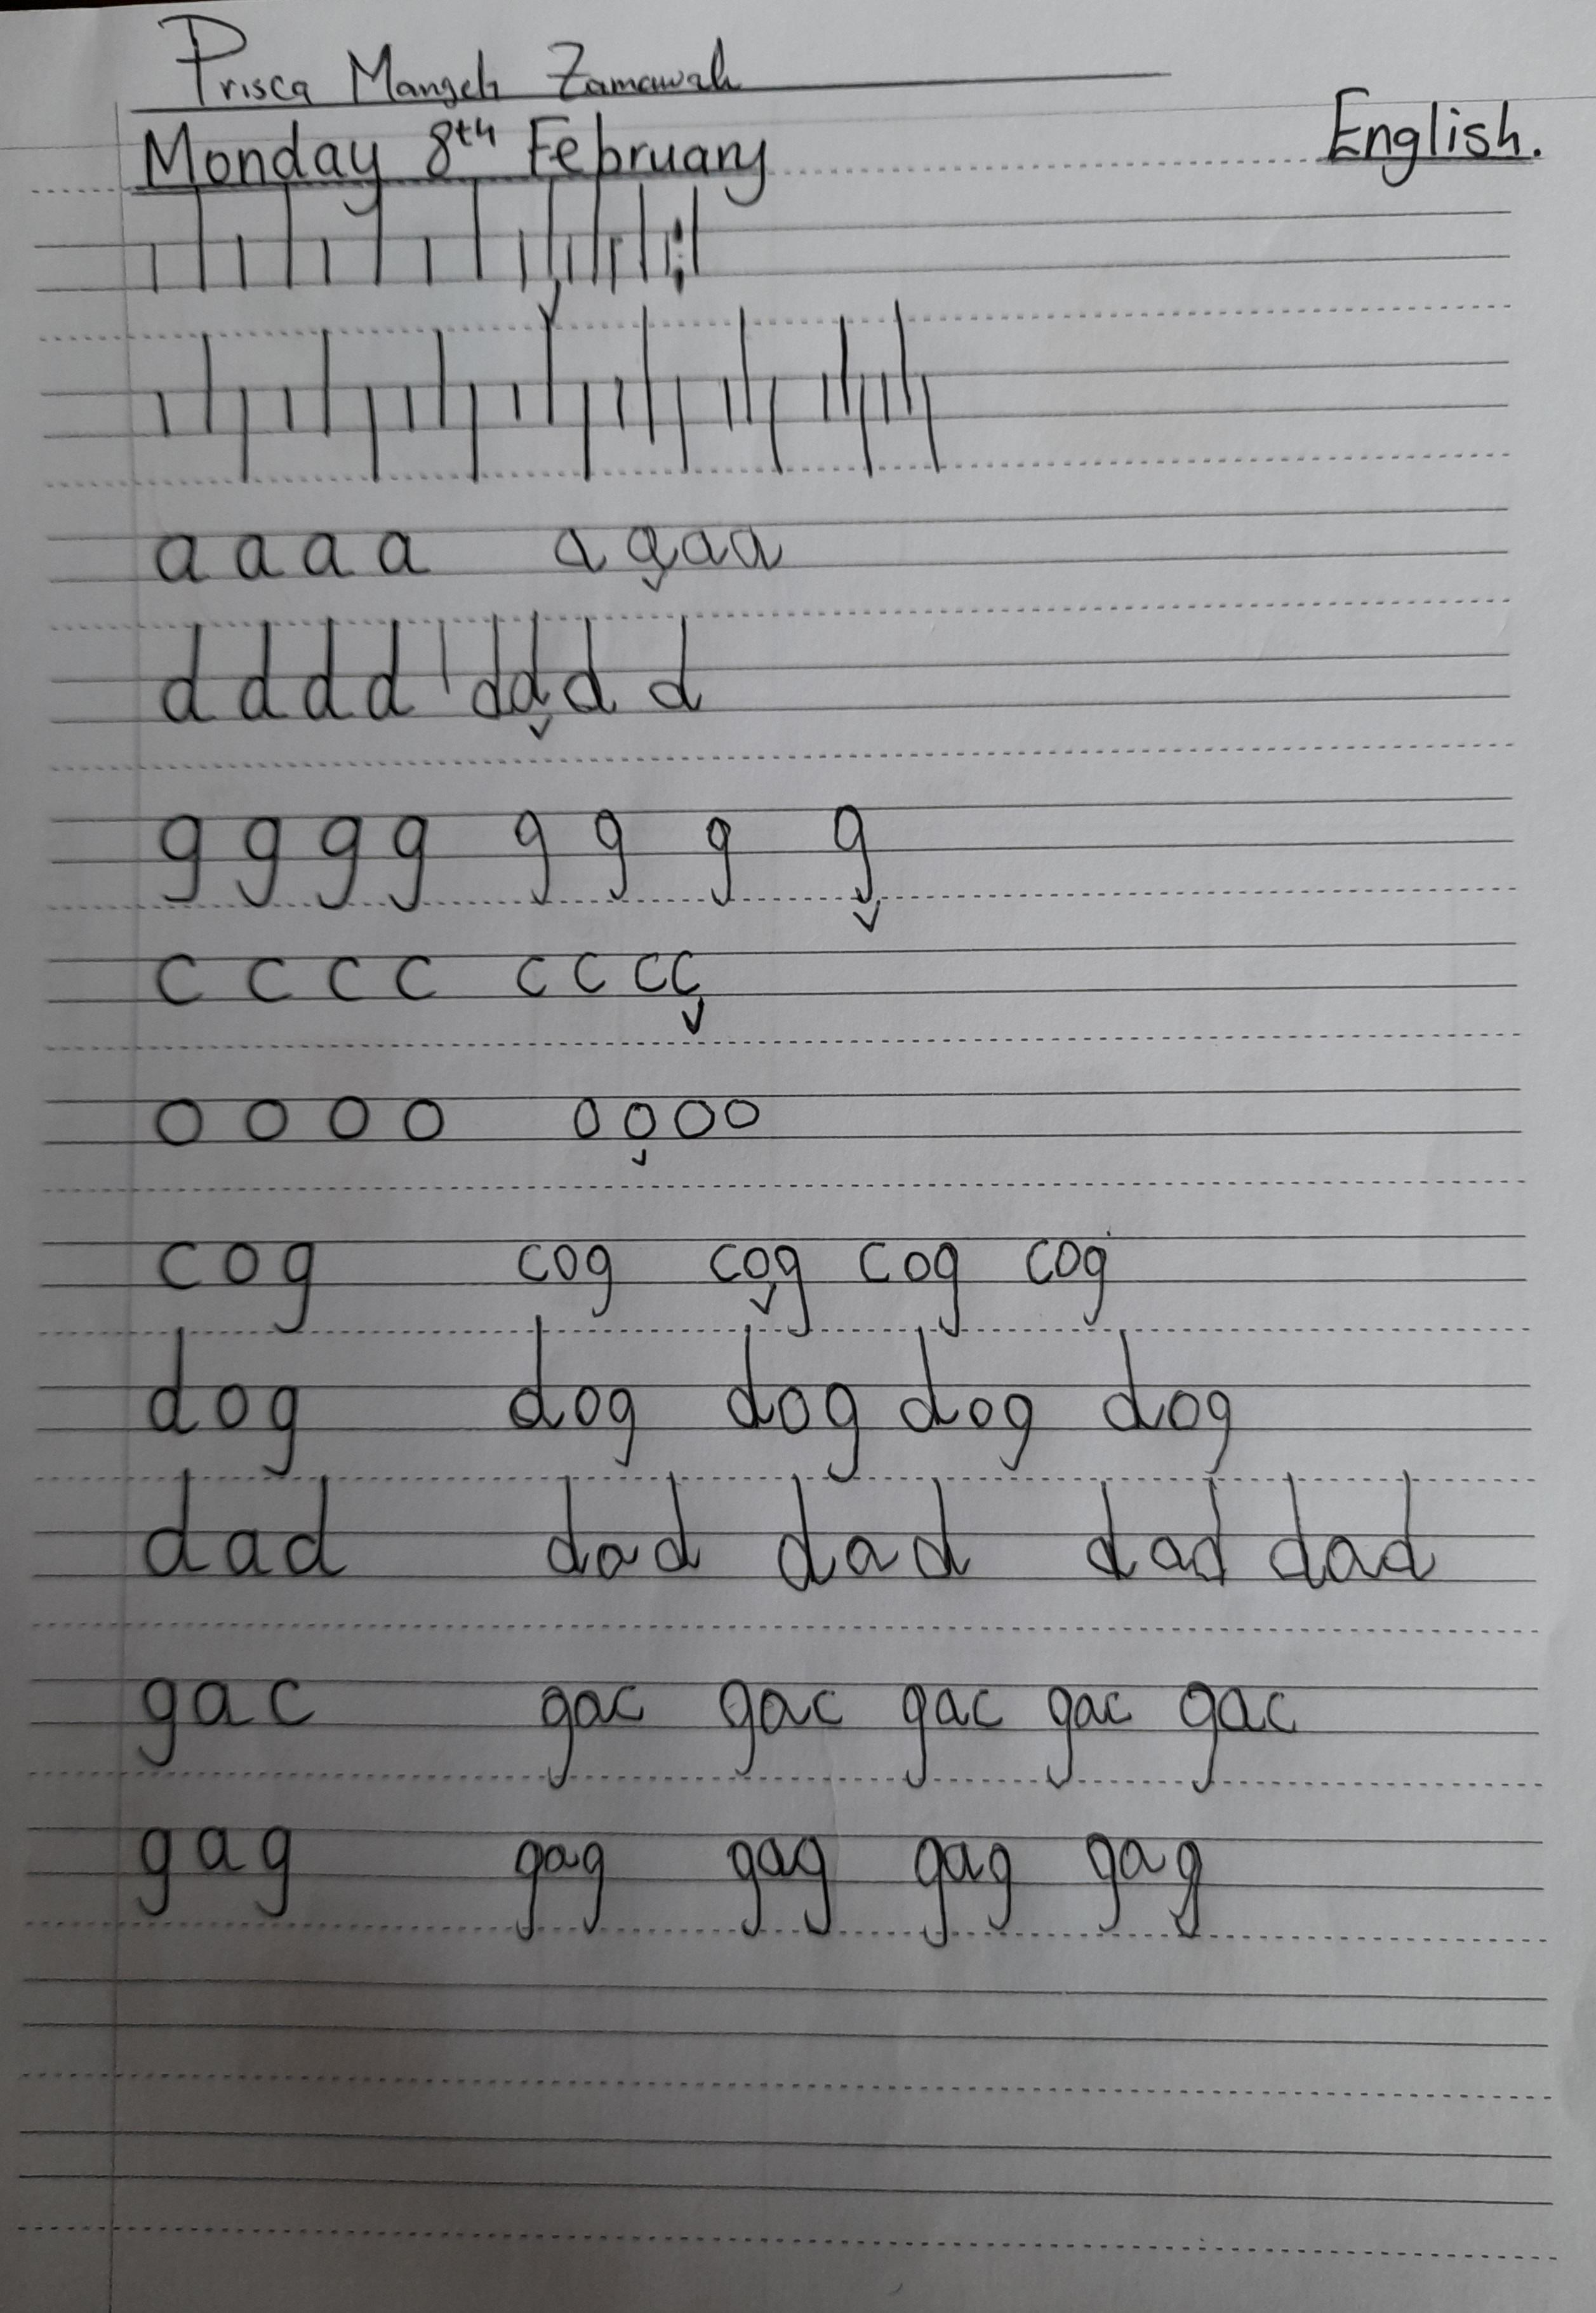 Prisca Mangeh Zamawah
Monday 8th February English.
a a a a a a a a
d d d d d d d d
g g g g g g g g
c c c c c c c c
o o o o o o o o
cog cog cog cog cog
dog dog dog dog dog
dad dad dad dad dad
gac gac gac gac gac gac
gag gag gag gag gag